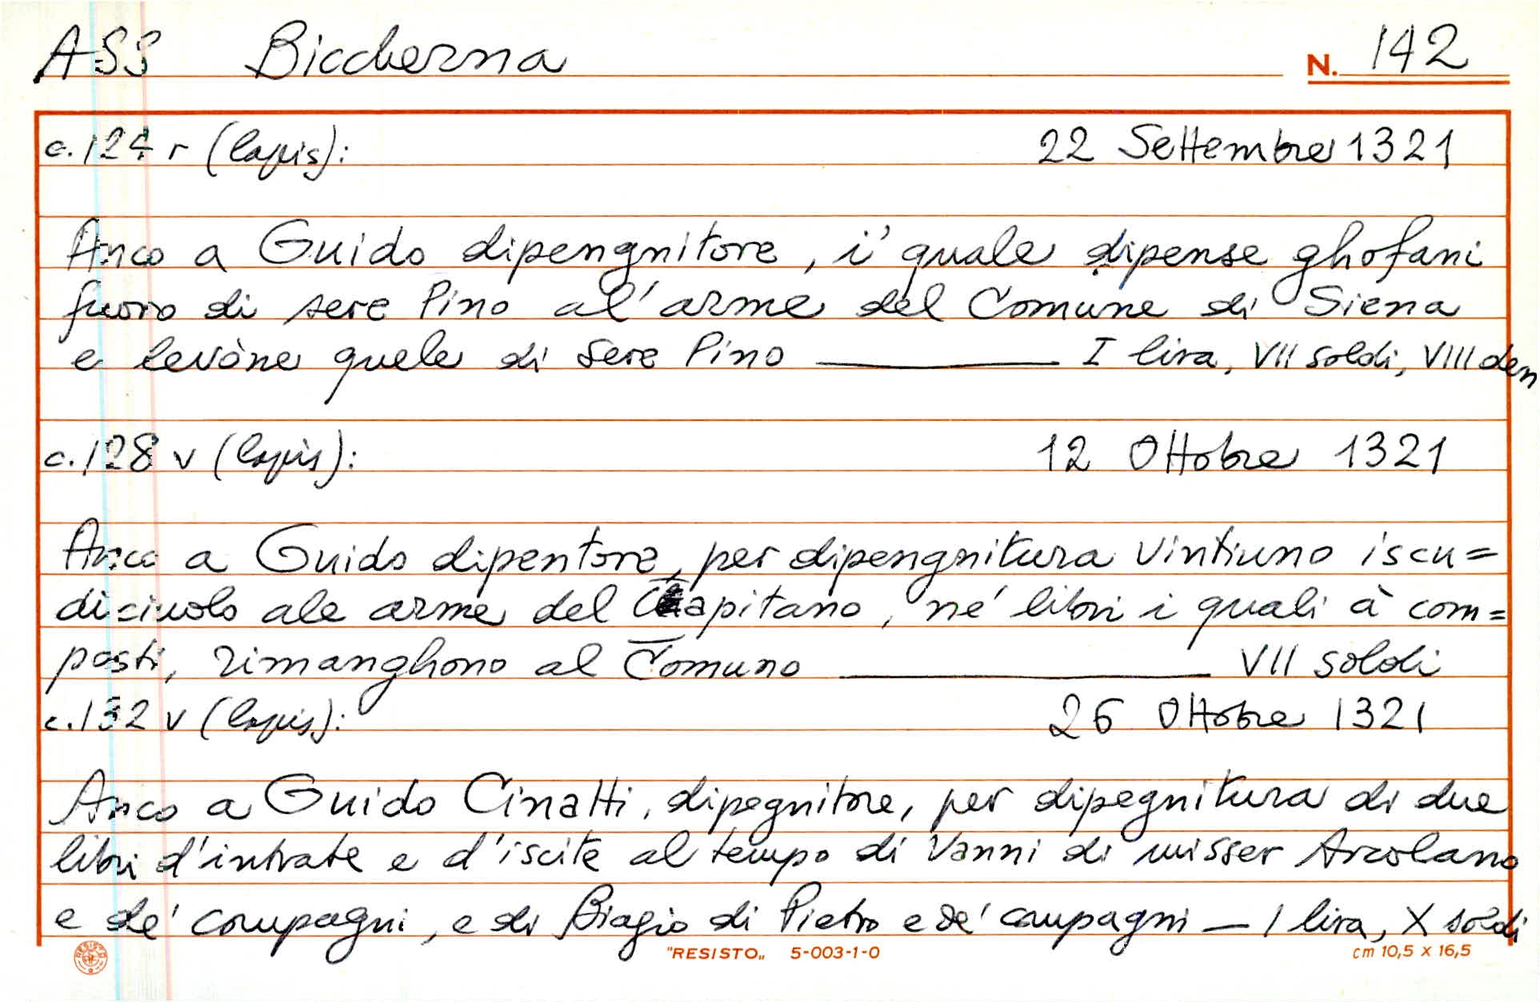 ASS Biccherna N. 142
c. 124 r (lapis): 22 Settembre 1321
Anco a Guido dipengnitore, i' quale dipense ghofani
fuoro di sere Pino al' arme del Comune di Siena
e levòne quele di Sere Pino ———— I lira, VII soldi, VIII den
c. 128 v (lapis): 12 Ottobre 1321
Anco a Guido dipentore, per dipengnitura vintiuno iscu=
diciuolo ale arme del Capitano, ne' libri i quali à com=
posti, rimanghono al Comuno ———— VII soldi
c. 132 v (lapis): 26 Ottobre 1321
Anco a Guido Cinatti, dipegnitore, per dipegnitura di due
libri d'intrate e d'iscite al tempo di Vanni di misser Arcolano
e de' compagni, e di Biagio di Pietro e de' compagni — I lira, X soldi
RESISTO
"RESISTO„ 5-003-1-0 cm 10,5 x 16,5